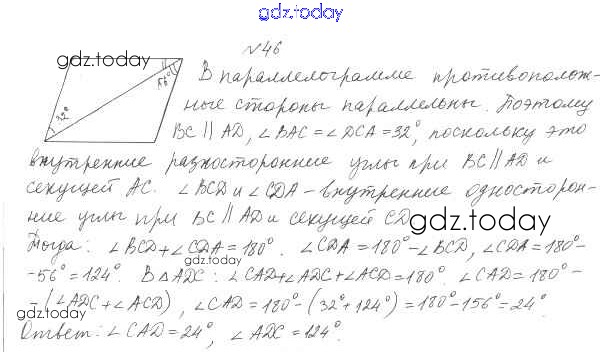 gdz.today
№46
gdz.today
56°
32°
В параллелограмме противополож-
ные стороны параллельны. Поэтому
BC || AD, ∠BAC = ∠DCA = 32°, поскольку это
внутренние разносторонние углы при BC || AD и
секущей AC. ∠BCD и ∠CDA - внутренние односторон-
ние углы при BC || AD и секущей CD.
gdz.today
Тогда: ∠BCD + ∠CDA = 180°. ∠CDA = 180° - ∠BCD, ∠CDA = 180° -
gdz.today
- 56° = 124°. В △ADC: ∠CAD + ∠ADC + ∠ACD = 180°. ∠CAD = 180° -
- (∠ADC + ∠ACD), ∠CAD = 180° - (32° + 124°) = 180° - 156° = 24°.
gdz.today
Ответ: ∠CAD = 24°, ∠ADC = 124°.
gdz.today